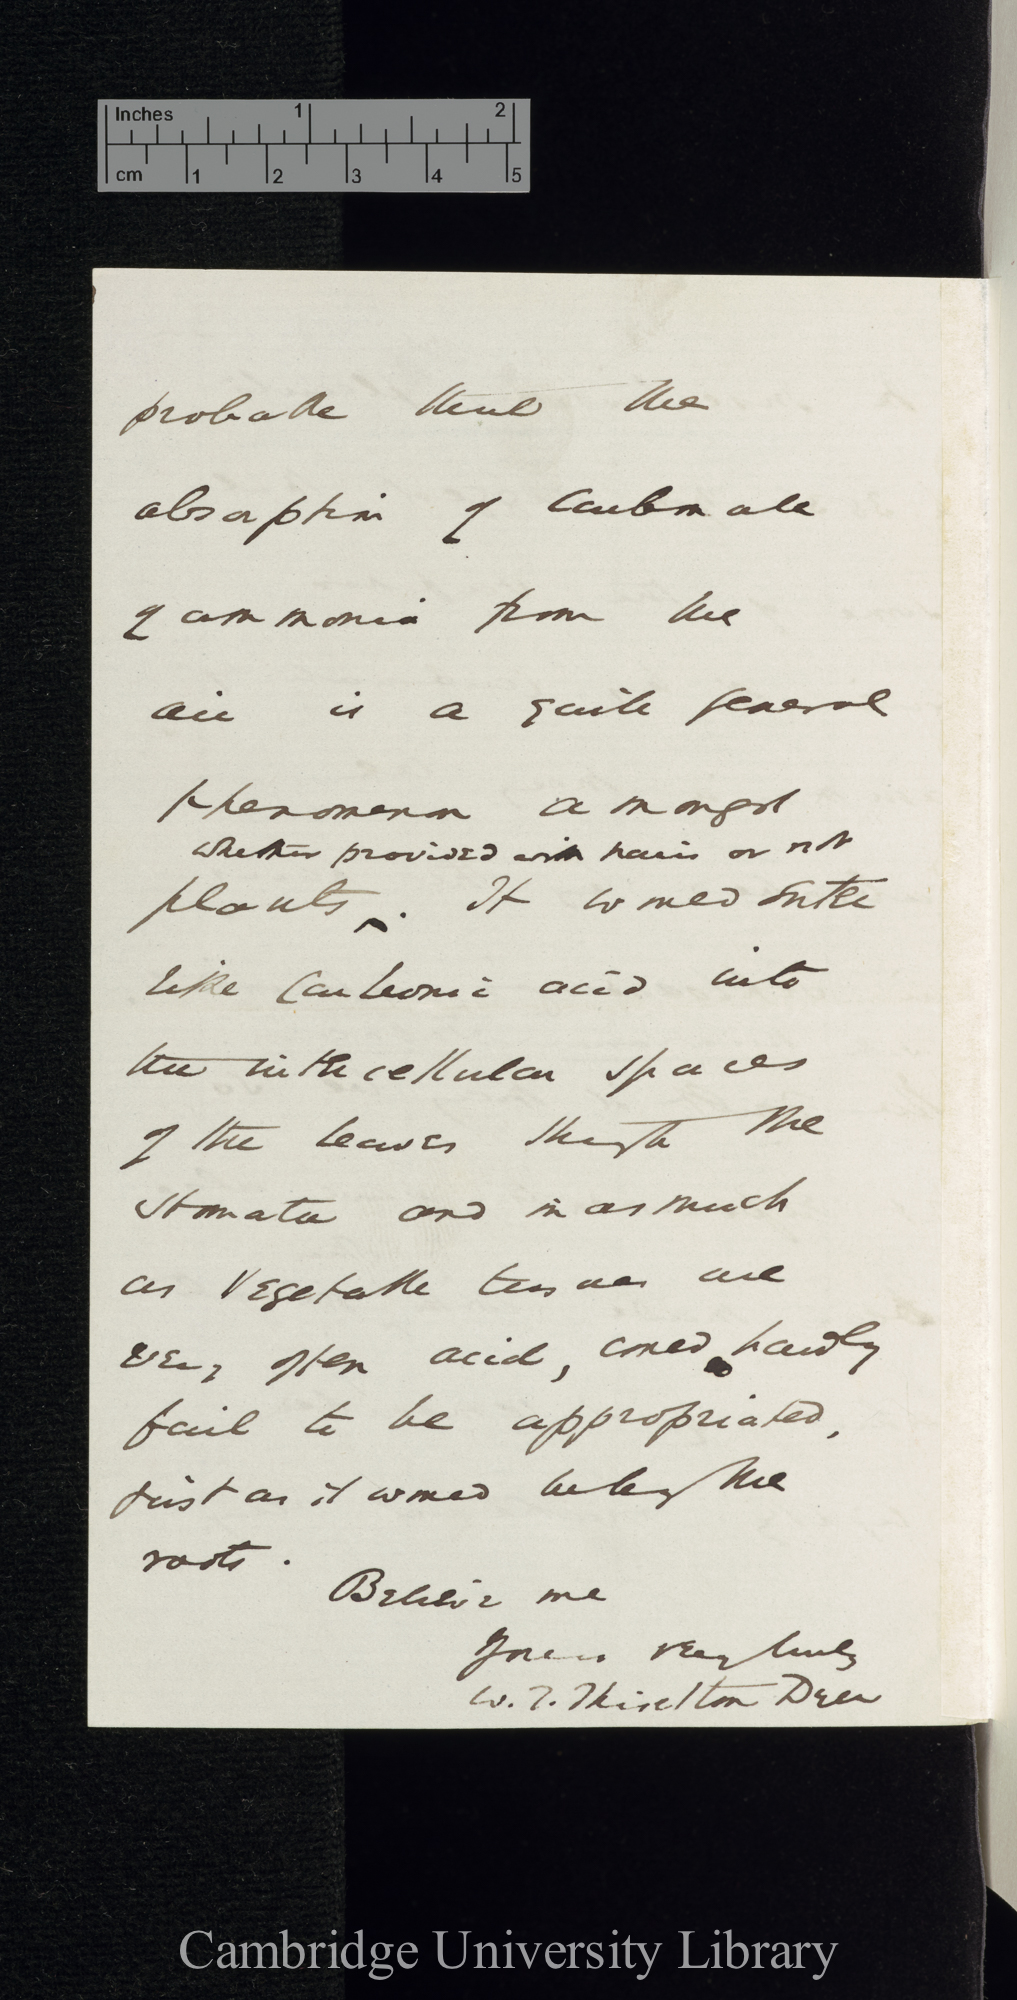 Inches 1 2
cm 1 2 3 4 5
probable that the
absorption of Carbonate
of ammonia from the
air is a quite general
phenomenon amongst
whether provided with hairs or not
plants ‸. It would enter
like Carbonic acid into
the intercellular spaces
of the leaves through the
stomata and in as much
as vegetable tissues are
very often acid, could hardly
fail to be appropriated,
just as it would be by the
roots.
Believe me
Yours very truly
W. T. Thiselton Dyer
Cambridge University Library